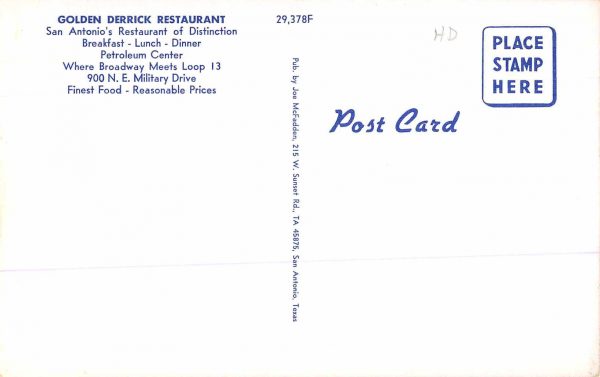 GOLDEN DERRICK RESTAURANT
San Antonio's Restaurant of Distinction
Breakfast - Lunch - Dinner
Petroleum Center
Where Broadway Meets Loop 13
900 N. E. Military Drive
Finest Food - Reasonable Prices
29,378F
Pub. by Joe McFadden, 215 W. Sunset Rd., TA 45875, San Antonio, Texas
HD
PLACE
STAMP
HERE
Post Card